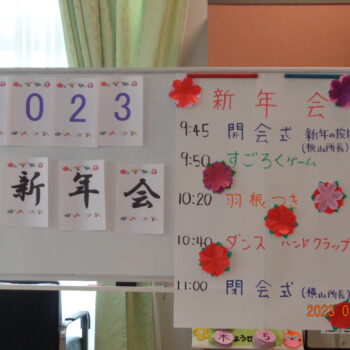 023
新年会
新年会
9:45 開会式 新年の挨
(横山所長)
9:50 すごろくゲーム
10:20 羽根つき
10:40 ダンス ハンドクラップ
11:00 閉会式 (横山所長)
2023 0
木ようび